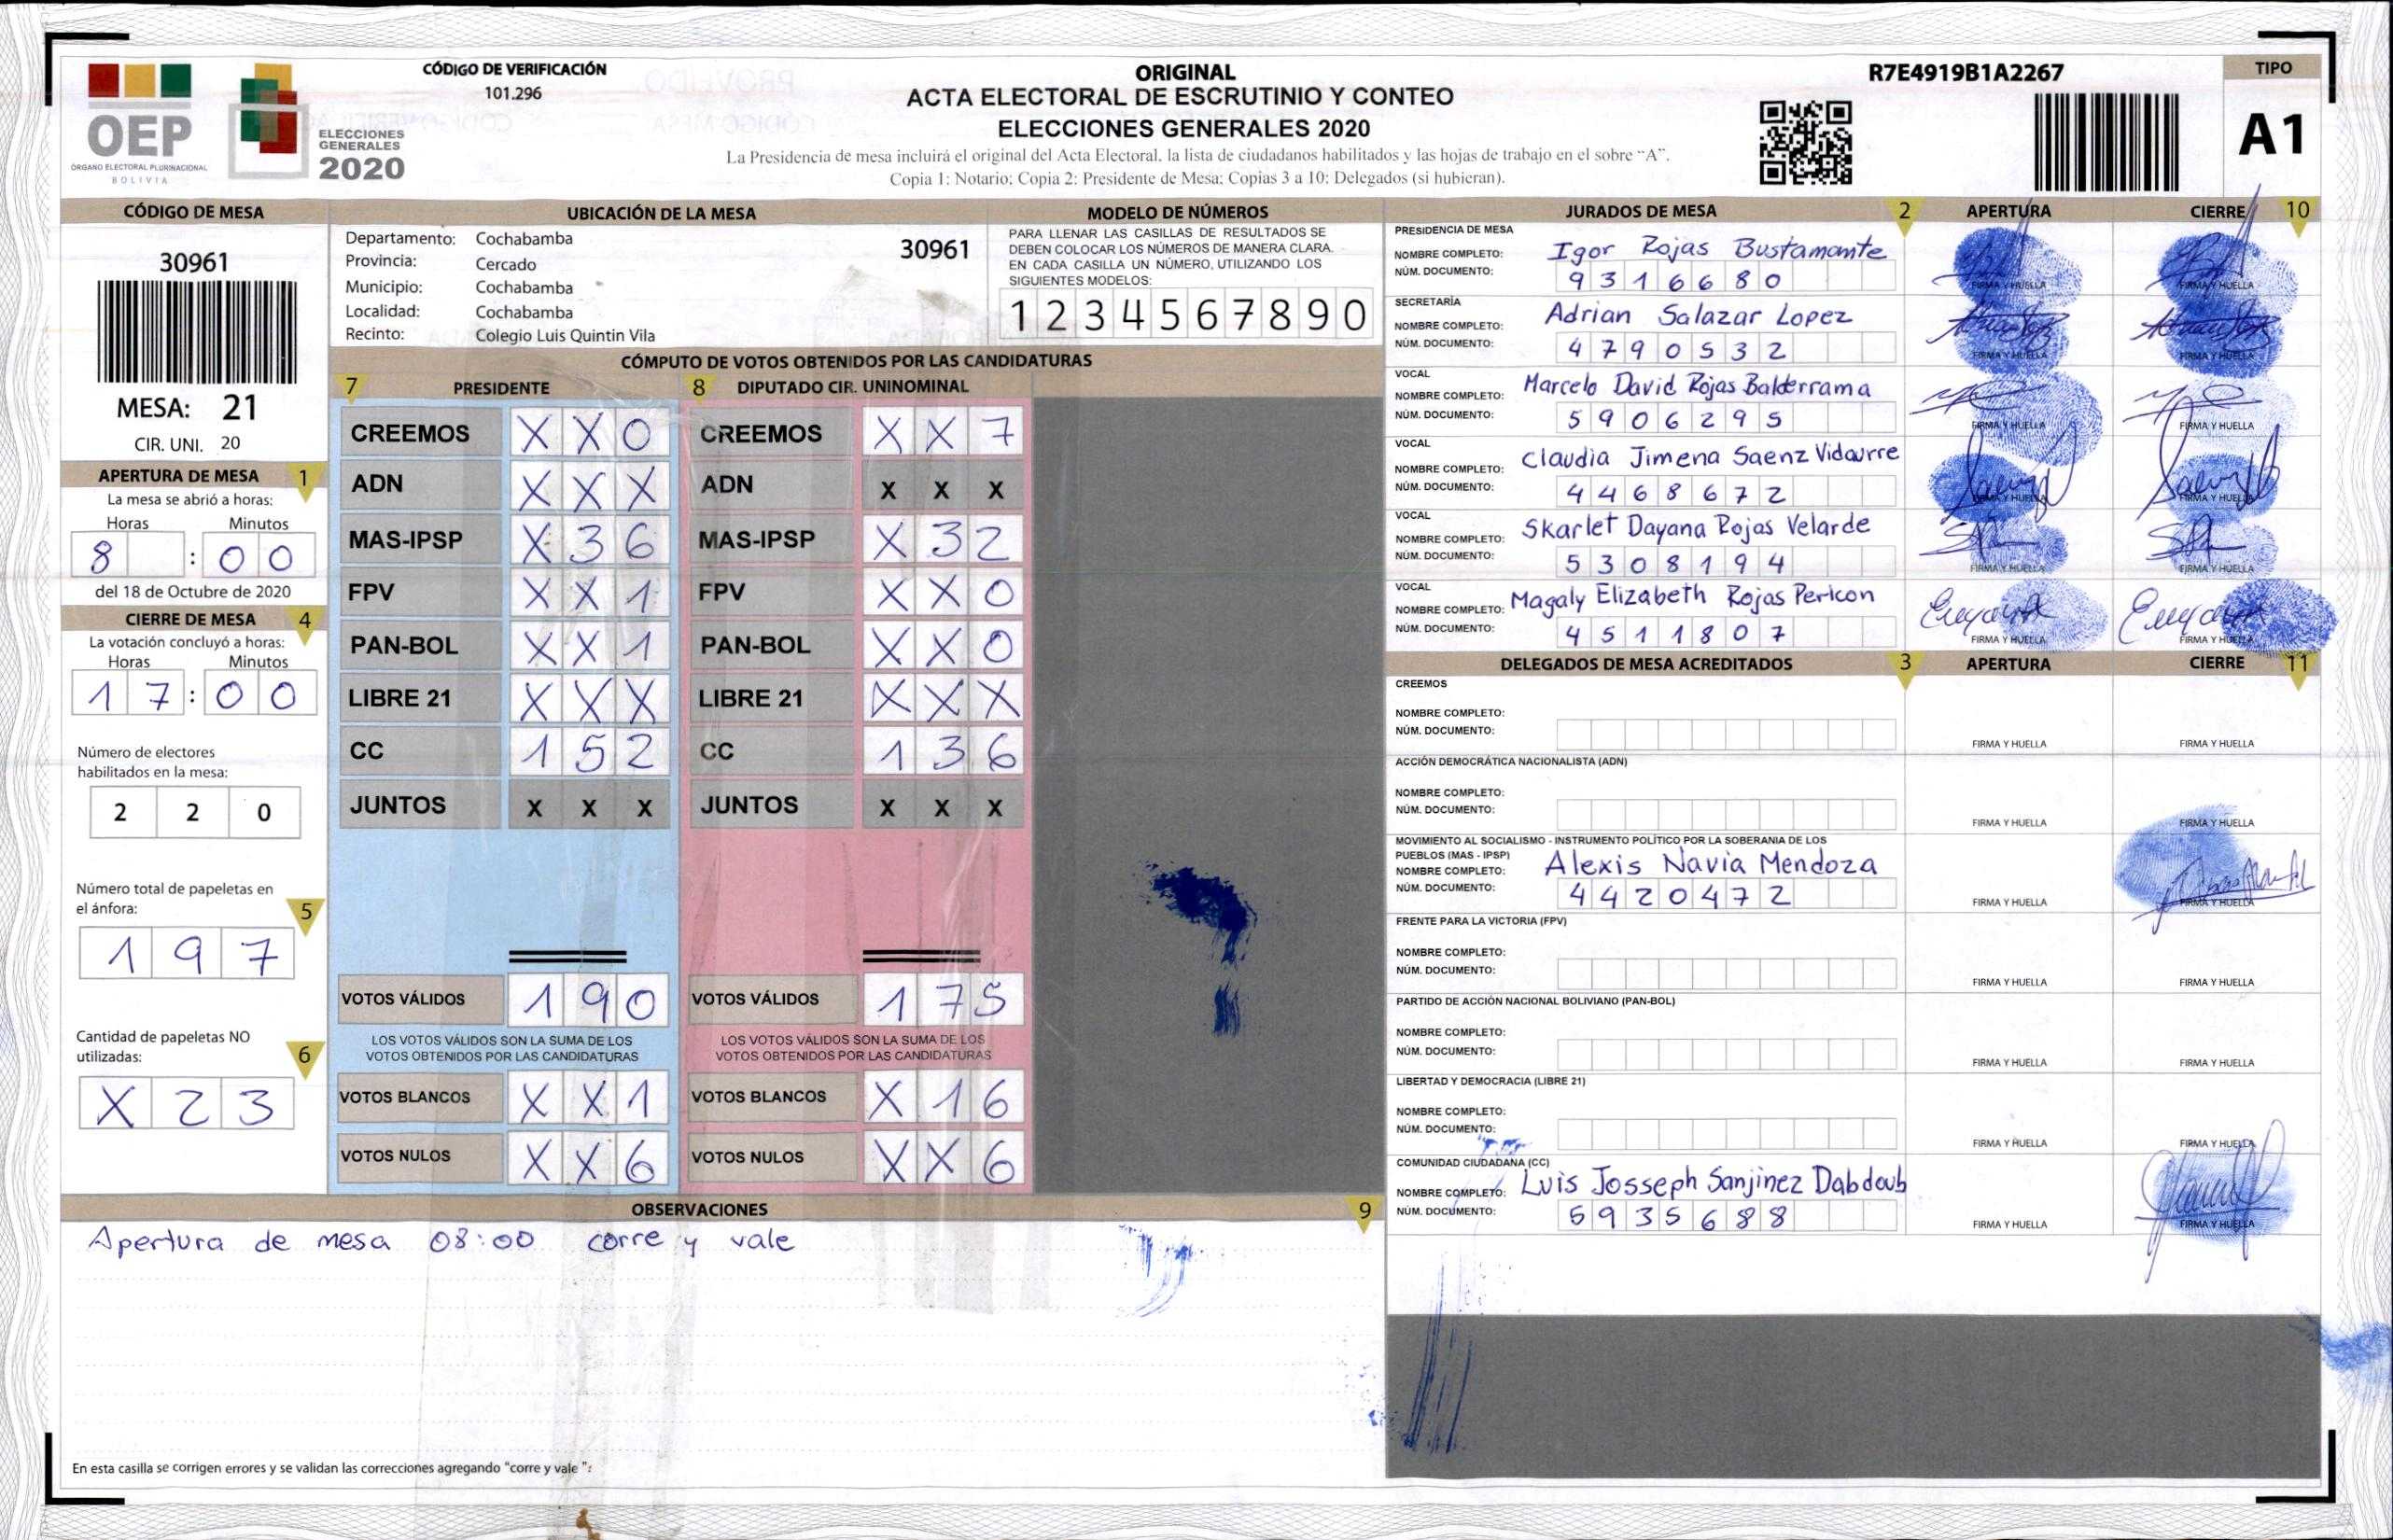 OEP
ÓRGANO ELECTORAL PLURINACIONAL
BOLIVIA
ELECCIONES
GENERALES
2020
CÓDIGO DE VERIFICACIÓN
101.296
ORIGINAL
ACTA ELECTORAL DE ESCRUTINIO Y CONTEO
ELECCIONES GENERALES 2020
La Presidencia de mesa incluirá el original del Acta Electoral, la lista de ciudadanos habilitados y las hojas de trabajo en el sobre "A".
Copia 1: Notario; Copia 2: Presidente de Mesa; Copias 3 a 10: Delegados (si hubieran).
R7E4919B1A2267
TIPO
A1
CÓDIGO DE MESA
30961
MESA: 21
CIR. UNI. 20
APERTURA DE MESA 1
La mesa se abrió a horas:
Horas Minutos
8 : 0 0
del 18 de Octubre de 2020
CIERRE DE MESA 4
La votación concluyó a horas:
Horas Minutos
1 7 : 0 0
Número de electores
habilitados en la mesa:
2 2 0
Número total de papeletas en
el ánfora: 5
1 9 7
Cantidad de papeletas NO
utilizadas: 6
X 2 3
UBICACIÓN DE LA MESA
Departamento: Cochabamba 30961
Provincia: Cercado
Municipio: Cochabamba
Localidad: Cochabamba
Recinto: Colegio Luis Quintin Vila
MODELO DE NÚMEROS
PARA LLENAR LAS CASILLAS DE RESULTADOS SE
DEBEN COLOCAR LOS NÚMEROS DE MANERA CLARA.
EN CADA CASILLA UN NÚMERO, UTILIZANDO LOS
SIGUIENTES MODELOS:
1 2 3 4 5 6 7 8 9 0
CÓMPUTO DE VOTOS OBTENIDOS POR LAS CANDIDATURAS
7 PRESIDENTE 8 DIPUTADO CIR. UNINOMINAL
CREEMOS X X 0 CREEMOS X X 7
ADN X X X ADN X X X
MAS-IPSP X 3 6 MAS-IPSP X 3 2
FPV X X 1 FPV X X 0
PAN-BOL X X 1 PAN-BOL X X 0
LIBRE 21 X X X LIBRE 21 X X X
CC 1 5 2 CC 1 3 6
JUNTOS X X X JUNTOS X X X
VOTOS VÁLIDOS 1 9 0 VOTOS VÁLIDOS 1 7 5
LOS VOTOS VÁLIDOS SON LA SUMA DE LOS LOS VOTOS VÁLIDOS SON LA SUMA DE LOS
VOTOS OBTENIDOS POR LAS CANDIDATURAS VOTOS OBTENIDOS POR LAS CANDIDATURAS
VOTOS BLANCOS X X 1 VOTOS BLANCOS X 1 6
VOTOS NULOS X X 6 VOTOS NULOS X X 6
OBSERVACIONES 9
Apertura de mesa 08:00 corre y vale
En esta casilla se corrigen errores y se validan las correcciones agregando "corre y vale ":
JURADOS DE MESA 2 APERTURA CIERRE 10
PRESIDENCIA DE MESA
NOMBRE COMPLETO: Igor Rojas Bustamante
NÚM. DOCUMENTO: 9 3 1 6 6 8 0 FIRMA Y HUELLA FIRMA Y HUELLA
SECRETARÍA
NOMBRE COMPLETO: Adrian Salazar Lopez
NÚM. DOCUMENTO: 4 7 9 0 5 3 2 FIRMA Y HUELLA FIRMA Y HUELLA
VOCAL
NOMBRE COMPLETO: Marcelo David Rojas Balderrama
NÚM. DOCUMENTO: 5 9 0 6 2 9 5 FIRMA Y HUELLA FIRMA Y HUELLA
VOCAL
NOMBRE COMPLETO: Claudia Jimena Saenz Vidaurre
NÚM. DOCUMENTO: 4 4 6 8 6 7 2 FIRMA Y HUELLA FIRMA Y HUELLA
VOCAL
NOMBRE COMPLETO: Skarlet Dayana Rojas Velarde
NÚM. DOCUMENTO: 5 3 0 8 1 9 4 FIRMA Y HUELLA FIRMA Y HUELLA
VOCAL
NOMBRE COMPLETO: Magaly Elizabeth Rojas Pericon
NÚM. DOCUMENTO: 4 5 1 1 8 0 7 FIRMA Y HUELLA FIRMA Y HUELLA
DELEGADOS DE MESA ACREDITADOS 3 APERTURA CIERRE 11
CREEMOS
NOMBRE COMPLETO:
NÚM. DOCUMENTO: FIRMA Y HUELLA FIRMA Y HUELLA
ACCIÓN DEMOCRÁTICA NACIONALISTA (ADN)
NOMBRE COMPLETO:
NÚM. DOCUMENTO: FIRMA Y HUELLA FIRMA Y HUELLA
MOVIMIENTO AL SOCIALISMO - INSTRUMENTO POLÍTICO POR LA SOBERANIA DE LOS
PUEBLOS (MAS - IPSP)
NOMBRE COMPLETO: Alexis Navia Mendoza
NÚM. DOCUMENTO: 4 4 2 0 4 7 2 FIRMA Y HUELLA FIRMA Y HUELLA
FRENTE PARA LA VICTORIA (FPV)
NOMBRE COMPLETO:
NÚM. DOCUMENTO: FIRMA Y HUELLA FIRMA Y HUELLA
PARTIDO DE ACCIÓN NACIONAL BOLIVIANO (PAN-BOL)
NOMBRE COMPLETO:
NÚM. DOCUMENTO: FIRMA Y HUELLA FIRMA Y HUELLA
LIBERTAD Y DEMOCRACIA (LIBRE 21)
NOMBRE COMPLETO:
NÚM. DOCUMENTO: FIRMA Y HUELLA FIRMA Y HUELLA
COMUNIDAD CIUDADANA (CC)
NOMBRE COMPLETO: Luis Josseph Sanjinez Dabdoub
NÚM. DOCUMENTO: 5 9 3 5 6 8 8 FIRMA Y HUELLA FIRMA Y HUELLA